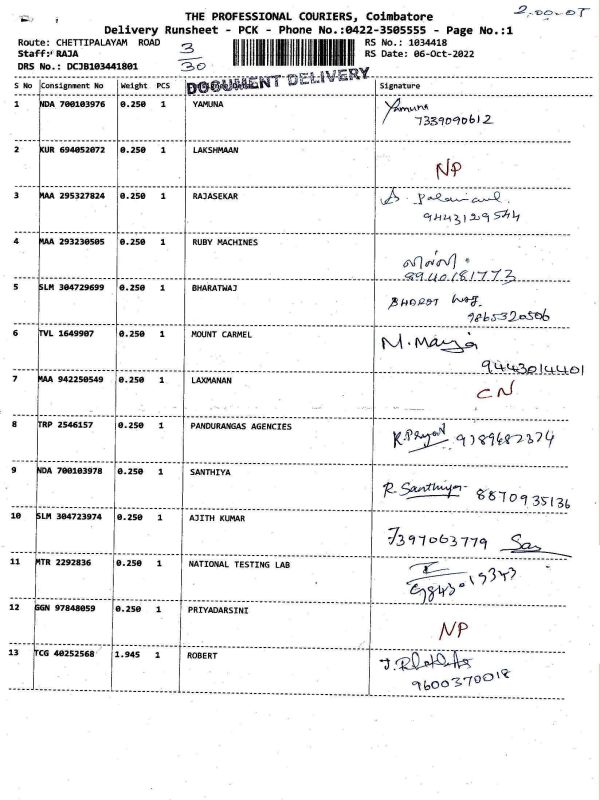 THE PROFESSIONAL COURIERS, Coimbatore
Delivery Runsheet - PCK - Phone No.:0422-3505555 - Page No.:1
Route: CHETTIPALAYAM ROAD 3/30 RS No.: 1034418
Staff: RAJA RS Date: 06-Oct-2022
DRS No.: DCJB103441801
DOCUMENT DELIVERY
S No Consignment No Weight PCS Signature
1 NDA 700103976 0.250 1 YAMUNA Yamuna
7339090612
2 KUR 694052072 0.250 1 LAKSHMAAN
NP
3 MAA 295327824 0.250 1 RAJASEKAR
9443129544
4 MAA 293230505 0.250 1 RUBY MACHINES
8940181773
5 SLM 304729699 0.250 1 BHARATWAJ
9865320506
6 TVL 1649907 0.250 1 MOUNT CARMEL
9443014401
7 MAA 942250549 0.250 1 LAXMANAN
CN
8 TRP 2546157 0.250 1 PANDURANGAS AGENCIES
9789682374
9 NDA 700103978 0.250 1 SANTHIYA
R. Santhiya 8870935136
10 SLM 304723974 0.250 1 AJITH KUMAR
7397063779
11 MTR 2292836 0.250 1 NATIONAL TESTING LAB
9843015343
12 GGN 97848059 0.250 1 PRIYADARSINI
NP
13 TCG 40252568 1.945 1 ROBERT
9600370018